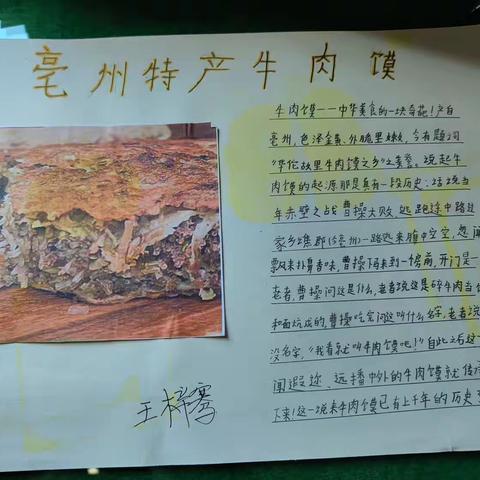 亳州特产牛肉馍
牛肉馍一一中华美食的一块奇葩！产自
亳州，色泽金黄、外脆里嫩，今有题词
"华佗故里牛肉馍之乡"之美誉。说起牛
肉馍的起源那是真有一段历史：话说当
年赤壁之战曹操大败，逃跑途中路过
家乡谯郡(今亳州)一路逃来腹中空空，忽闻
飘来扑鼻香味，曹操下马来到一个房前，开门是一
老者，曹操问这是什么，老者说这是碎牛肉当
和面炕成的，曹操吃完问这叫什么名字，老者说
没名字，"我看就叫牛肉馍吧！"自此之后这一
闻遐迩、远播中外的牛肉馍就传
下来！这一说来牛肉馍已有上千年的历史
王梓骞